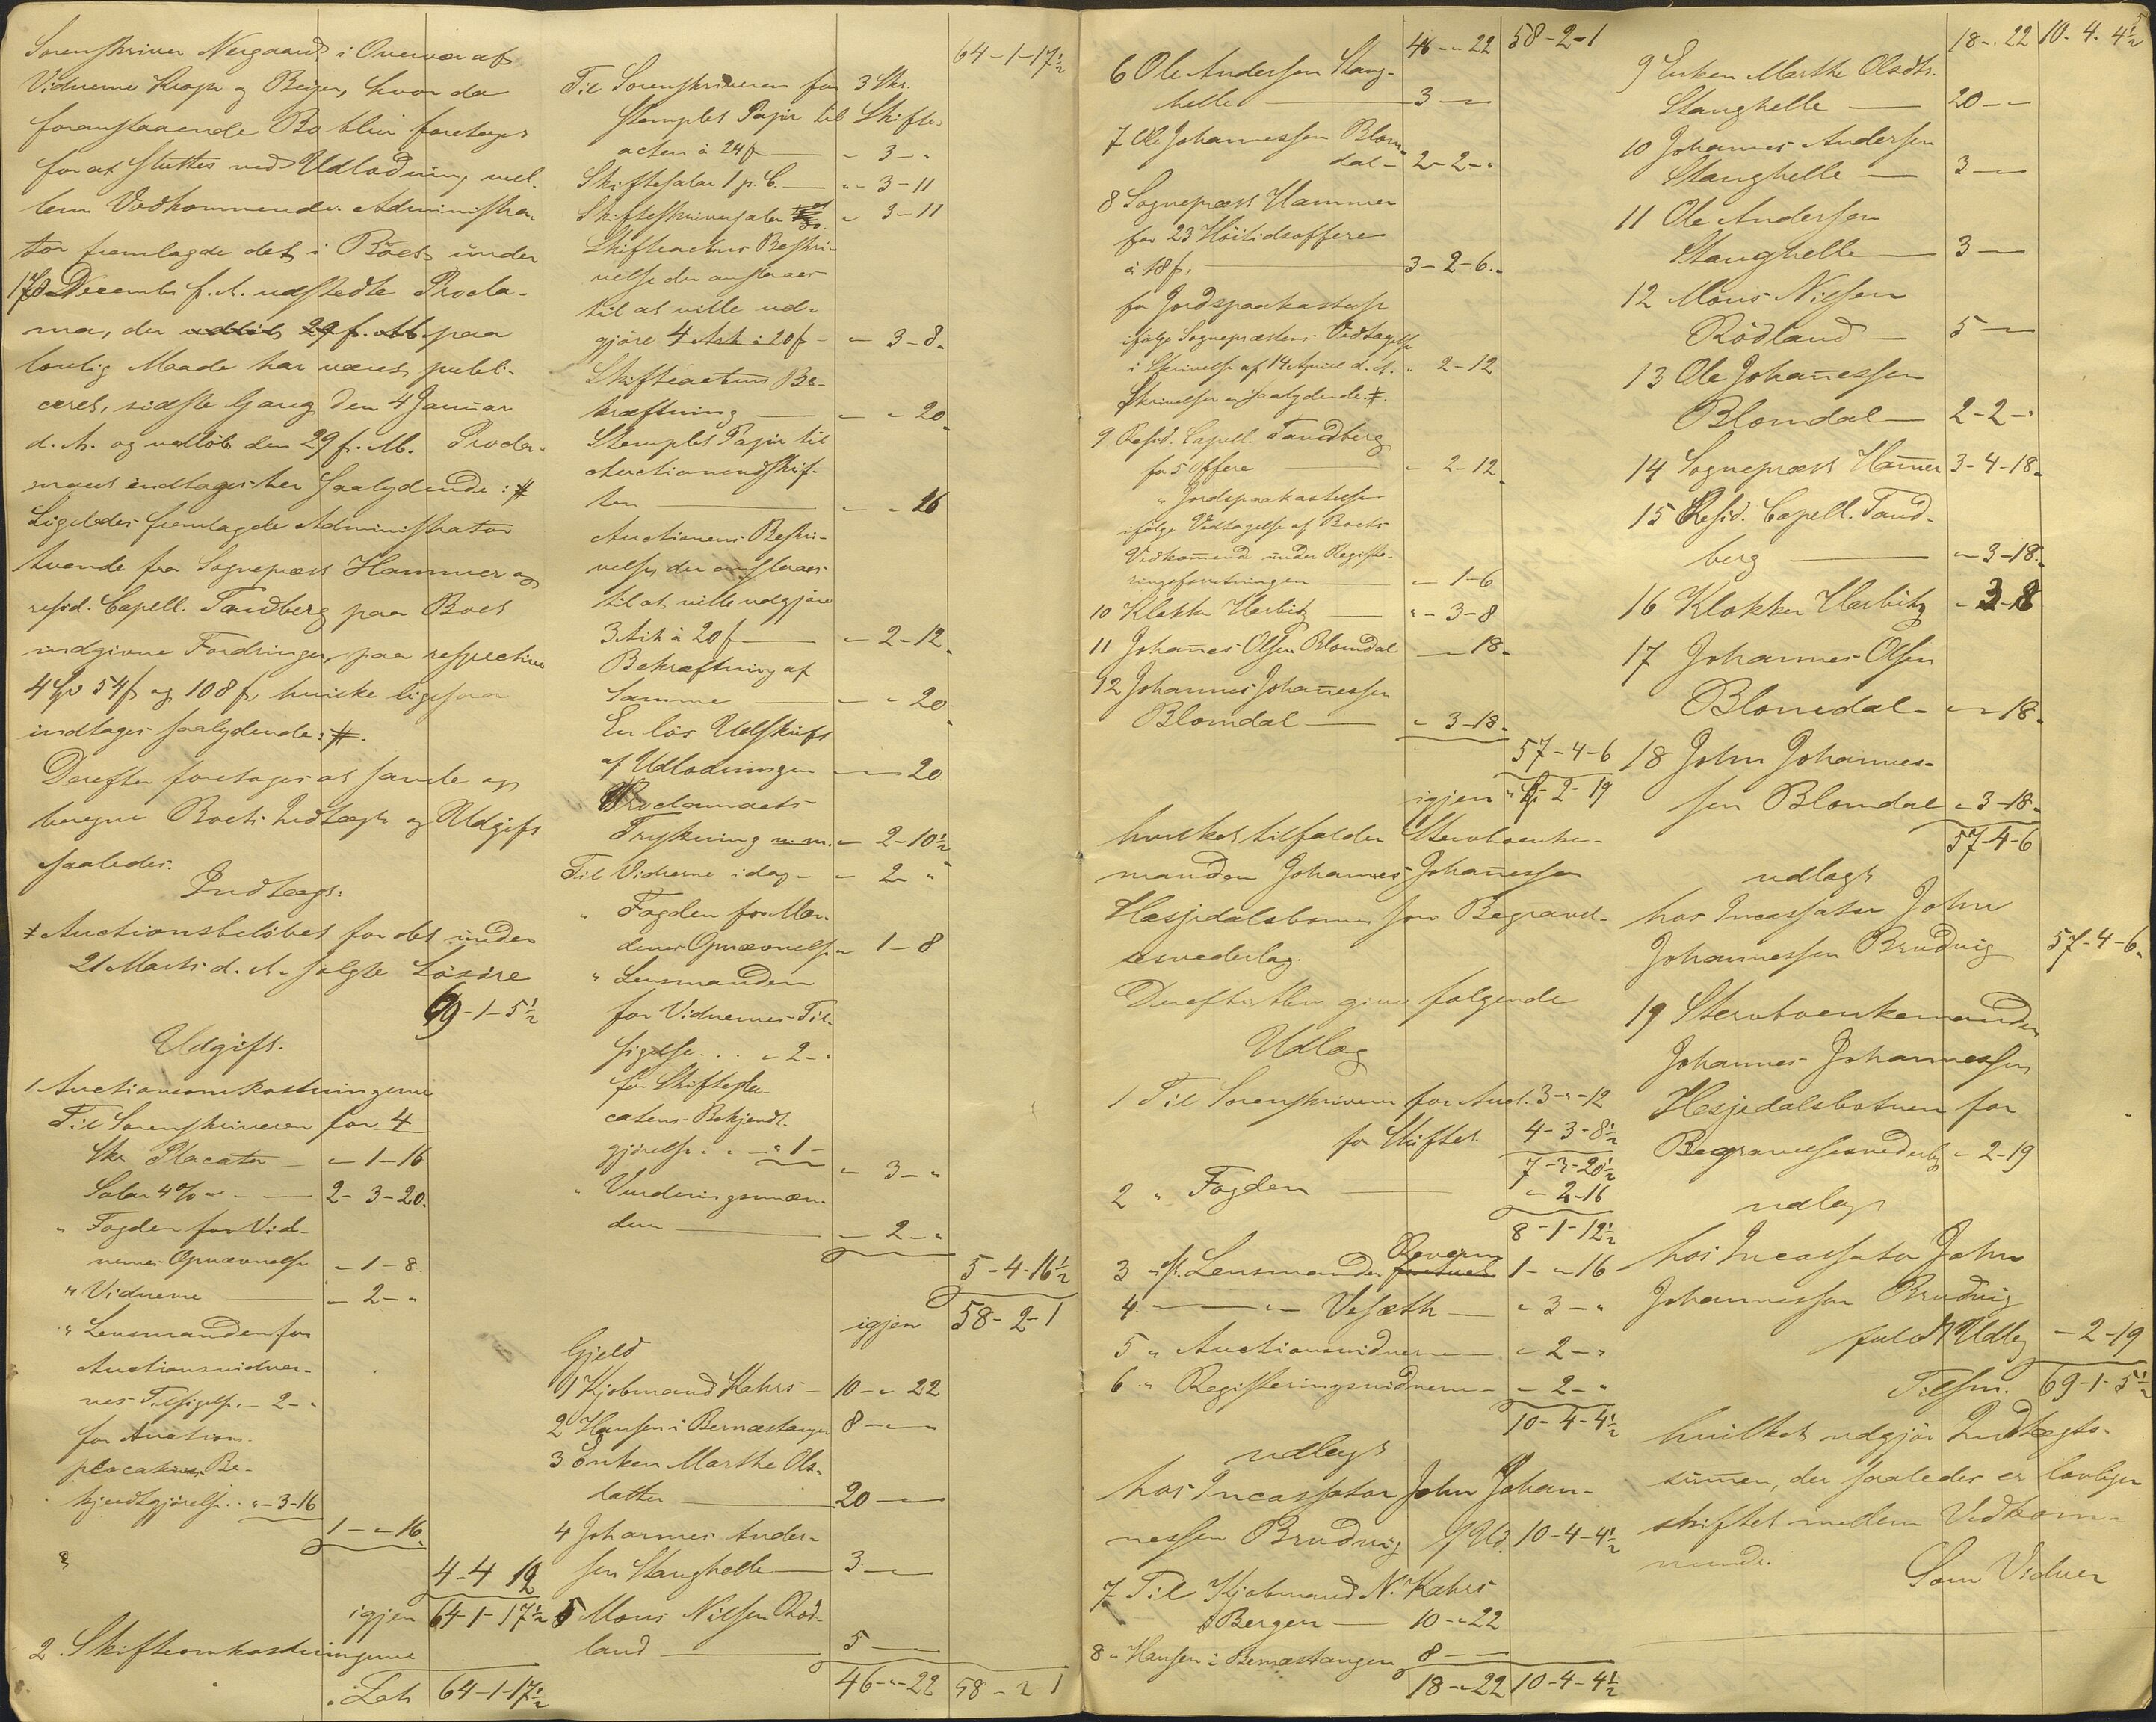 Sorenskriver Nergaard, i Overvær af
Vidnerne Krage og Beyer, hvor da
foranstaaende Bo blev foretaget
for at sluttes ved Udlodning mel-
lem Vedkommende. Administra-
tor fremlagde det i Boet under
17d December f. A. udstedte Procla-
ma, der udlöb 29 f. M. paa
lovlig Maade har været publi-
ceret, sidste Gang den 4 Januar
d. A. og udlöb den 29 f. M. Procla-
maet indtages her saalydende: #
Ligeledes fremlagde Administrator
tvende fra Sognepræst Hammer og
resid. Capell. Tandberg paa Boet
indgivne Fordringer, paa respective
4 Spd 54 f og 108 f, hvilke ligesaa
indtages saalydende: #.
Derefter foretoges at samle og
beregne Boets Indtægt og Udgift
saaledes:
Indtægt:
# Auctionsbelöbet for det under
21 Marts d. A. solgte Lösöre
69-1-5½
Udgift.
1 Auctionsomkostningerne
Til Sorenskriveren for 4
Skr. Placater - " 1-16
Salar 4% - 2-3-20.
" Fogden for Vid-
nernes Opnævnelse - 1-8.
" Vidnerne - 2-"
" Lensmanden for
Auctionsvidner-
nes Tilsigelse - 2-"
for Auctions-
placatens Be-
kjendtgjörelse .. "-3-16
1-"-16.
4-4-19
igjen 64-1-17½
2. Skifteomkostningerne
Lat. 64-1-17½
64-1-17½
Til Sorenskriveren for 3 Skr.
stemplet Papir til Skifte-
acten à 24 f - " 3-"
Skiftesalar 1 p. C. - " 3-11
Skifteskriversalar " 3-11
Skifteactens Beskri-
velse der ansees
til at ville ud-
gjöre 4 Ark à 20 f - " 3-8.
Skifteactens Be-
kræftning - " " 20.
Stemplet Papir til
Auctionsudskrif-
ten - " " 16
Auctionens Beskri-
velse, der ansees
til at ville udgjöre
3 Ark à 20 f - " 2-12.
Bekræftning af
Samme - " " 20.
En lös Udskrift
af Udlodningen - " 20
Proclamaets
Trykning m. m. " 2-10½
Til Vidnerne idag - " 2-"
" Fogden for Mæn-
denes Opnævnelse " 1-8
" Lensmanden
for Vidnernes Til-
sigelse... " 2-"
for Skiftepla-
catens Bekjendt-
gjörelse.. - " 1-
" 3-"
" Vurderingsmæn-
dene - 2-"
5-4-16½
igjen 58-2-1
Gjeld
1 Kjöbmand Kahrs - 10-"-22
2 Hansen i Bernæstangen 8-"-
3 Enken Marthe Ols-
datter 20-"-
4 Johannes Ander-
sen Stanghelle 3-"-
5 Mons Nilsen Röd-
land 5-"-
46-"-22 58-2-1
46-"-22 58-2-1
6 Ole Andersen Stang-
helle - 3-"
7 Ole Johannessen Blom-
dal - 2-2-"
8 Sognepræst Hammer
for 23 Höitidsoffere
à 18 f. 3-2-6.
for Jordspaakastelse
ifölge Sognepræstens Vedtagelse
i Skrivelse af 14 April d. A. " 2-12
Skrivelsen er saalydende: #.
9 Resid. Capell. Tandberg
for 5 Offere - 2-12.
" Jordspaakastelsen
ifölge Vedtagelse af Boets
Vedkommende under Registe-
ringsforretningen - 1-6
10 Klokker Harbitz "-3-8
11 Johannes Olsen Blomdal - 18-
12 Johannes Johannessen
Blomdal - " 3-18.
57-4-6
igjen " 2-19
hvilket tilfalder Stervboenke-
manden Johannes Johannessen
Hæsjedalsbotnen for Begravel-
sesvederlag.
Derefter blev givet fölgende
Udlæg
1 Til Sorenskriveren for Auct. 3-"-12
for Skiftet. 4-3-8½
7-3-20½
2 " Fogden - " 2-16
8-1-12½
3 " f. Lensmanden Revem 1-"-16
4 - " - Veseth - " 3-"
5 " Auctionsvidnerne - " 2-"
6 " Registeringsvidnerne - " 2-"
10-4-4½
udlagt
hos Incassator John Johan-
nessen Brudvig f Udl. 10-4-4½
7 Til Kjöbmand N. Kahrs
i Bergen - 10-"22
8 " Hansen i Bernæstangen 8-"-
18-"22 10-4-4½
18-"22 10-4-4½
9 Enken Marthe Olsdtr.
Stanghelle - 20-"
10 Johannes Andersen
Stanghelle - 3-"
11 Ole Andersen
Stanghelle - 3-"
12 Mons Nilsen
Rödland - 5-"
13 Ole Johannessen
Blomdal - 2-2-"
14 Sognepræst Hammer 3-4-18.
15 Resid. Capell. Tand-
berg - "-3-18.
16 Klokker Harbitz - 3-8
17 Johannes Olsen
Blomdal - "-"18.
18 John Johannes-
sen Blomdal "-3-18.
57-4-6
udlagt
hos Incassator John
Johannessen Brudvig 57-4-6.
19 Stervboenkemanden
Johannes Johannessen
Hesjedalsbotnen for
Begravelsesvederlag - 2-19
udlagt
hos Incassator John
Johannessen Brudvig
fuldt Udlæg - 2-19
Tilsm. 69-1-5½
hvilket udgjör Indtægts-
summen, der saaledes er lovligen
skiftet mellem Vedkom-
mende.
Som Vidner